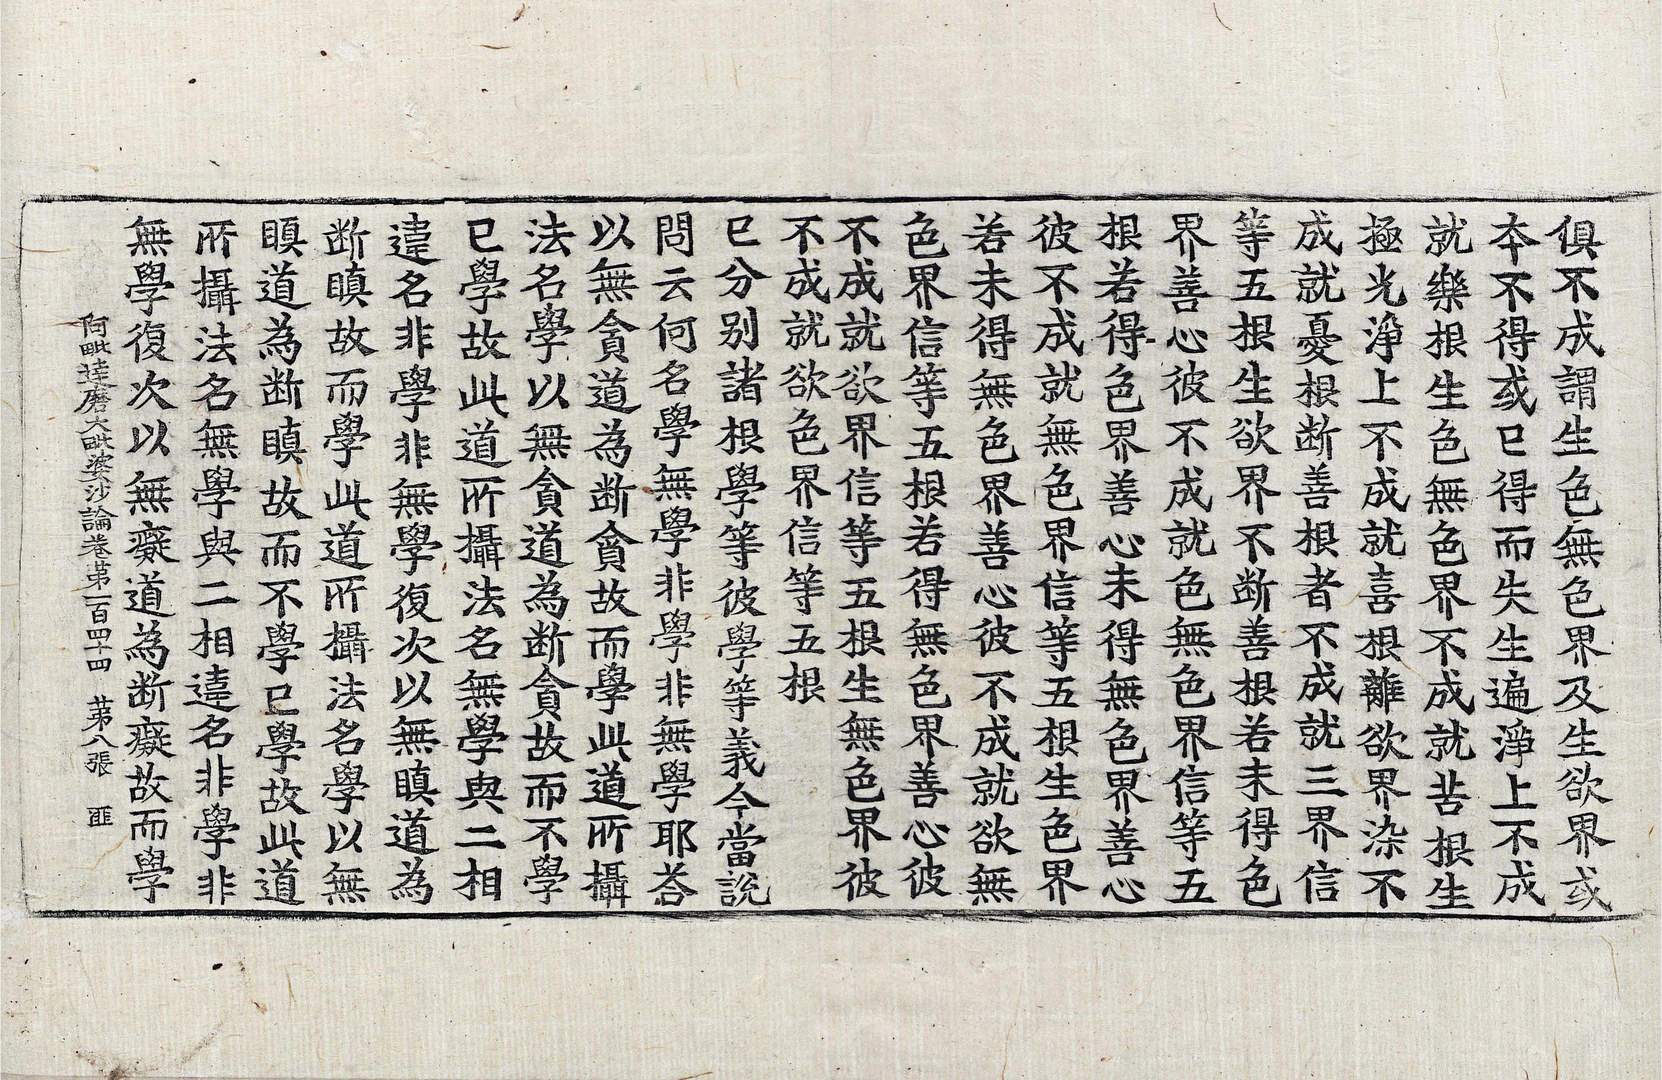 俱不成謂生色無色界及生欲界或
本不得或已得而失生遍淨上不成
就樂根生色無色界不成就苦根生
極光淨上不成就喜根離欲界染不
成就憂根断善根者不成就三界信
等五根生欲界不断善根若未得色
界善心彼不成就色無色界信等五
根若得色界善心未得無色界善心
彼不成就無色界信等五根生色界
若未得無色界善心彼不成就欲無
色界信等五根若得無色界善心彼
不成就欲界信等五根生無色界彼
不成就欲色界信等五根
已分別諸根學等彼學等義今當說
問云何名學無學非學非無學耶荅
以無貪道為断貪故而學此道所攝
法名學以無貪道為断貪故而不學
已學故此道所攝法名無學與二相
違名非學非無學復次以無瞋道為
断瞋故而學此道所攝法名學以無
瞋道為断瞋故而不學已學故此道
所攝法名無學與二相違名非學非
無學復次以無癡道為断癡故而學
阿毗達磨大毗婆沙論卷第一百四十四　第八張　匪